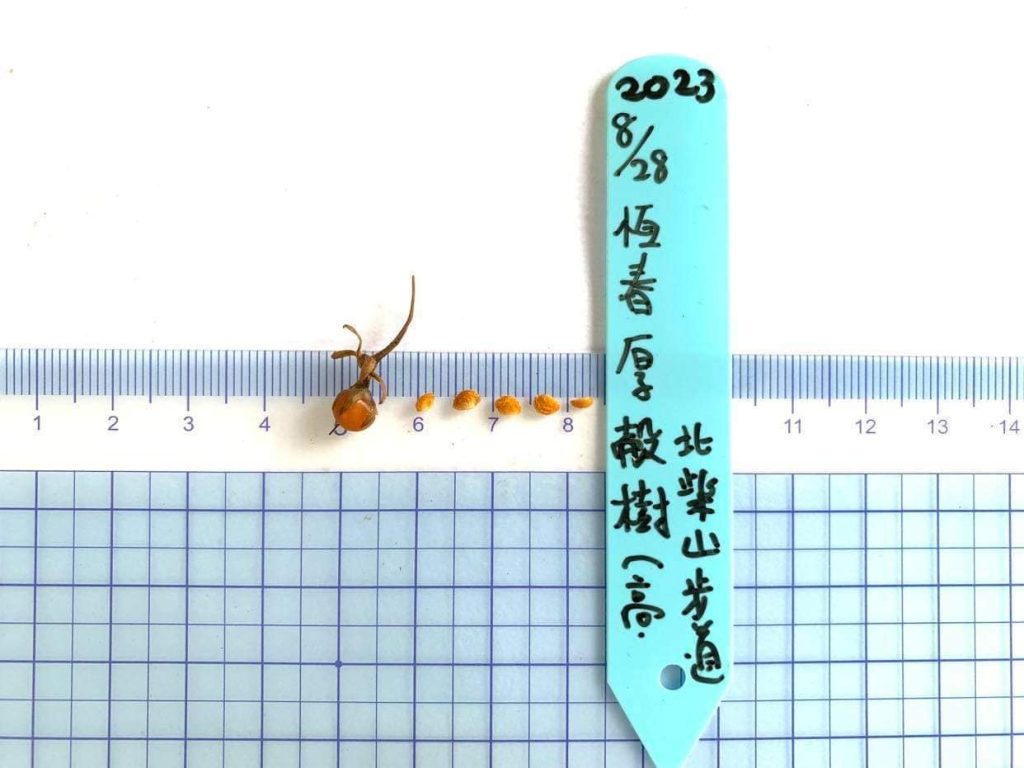 2023
8/28
恆春厚殼樹(高.
北柴山步道
1 2 3 4 5 6 7 8 11 12 13 14